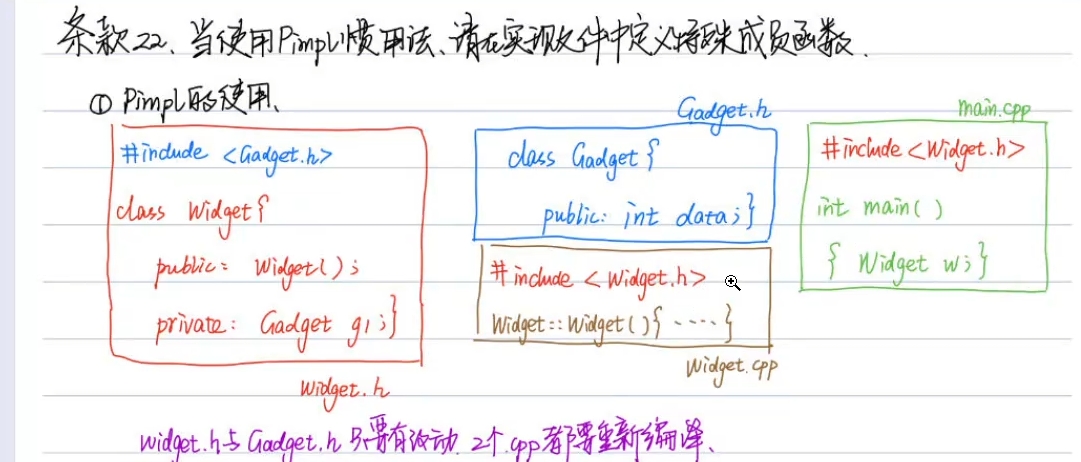 条款22、当使用Pimpl惯用法、请在实现文件中定义特殊成员函数.
① Pimpl的使用、
Widget.h
#include <Gadget.h>
class Widget{
public: Widget();
private: Gadget g1;}
Gadget.h
class Gadget {
public: int data;}
#include <Widget.h>
Widget::Widget(){ ····}
Widget.cpp
main.cpp
#include <Widget.h>
int main( )
{ Widget w;}
widget.h与Gadget.h 只要有改动 2个.cpp都要重新编译、